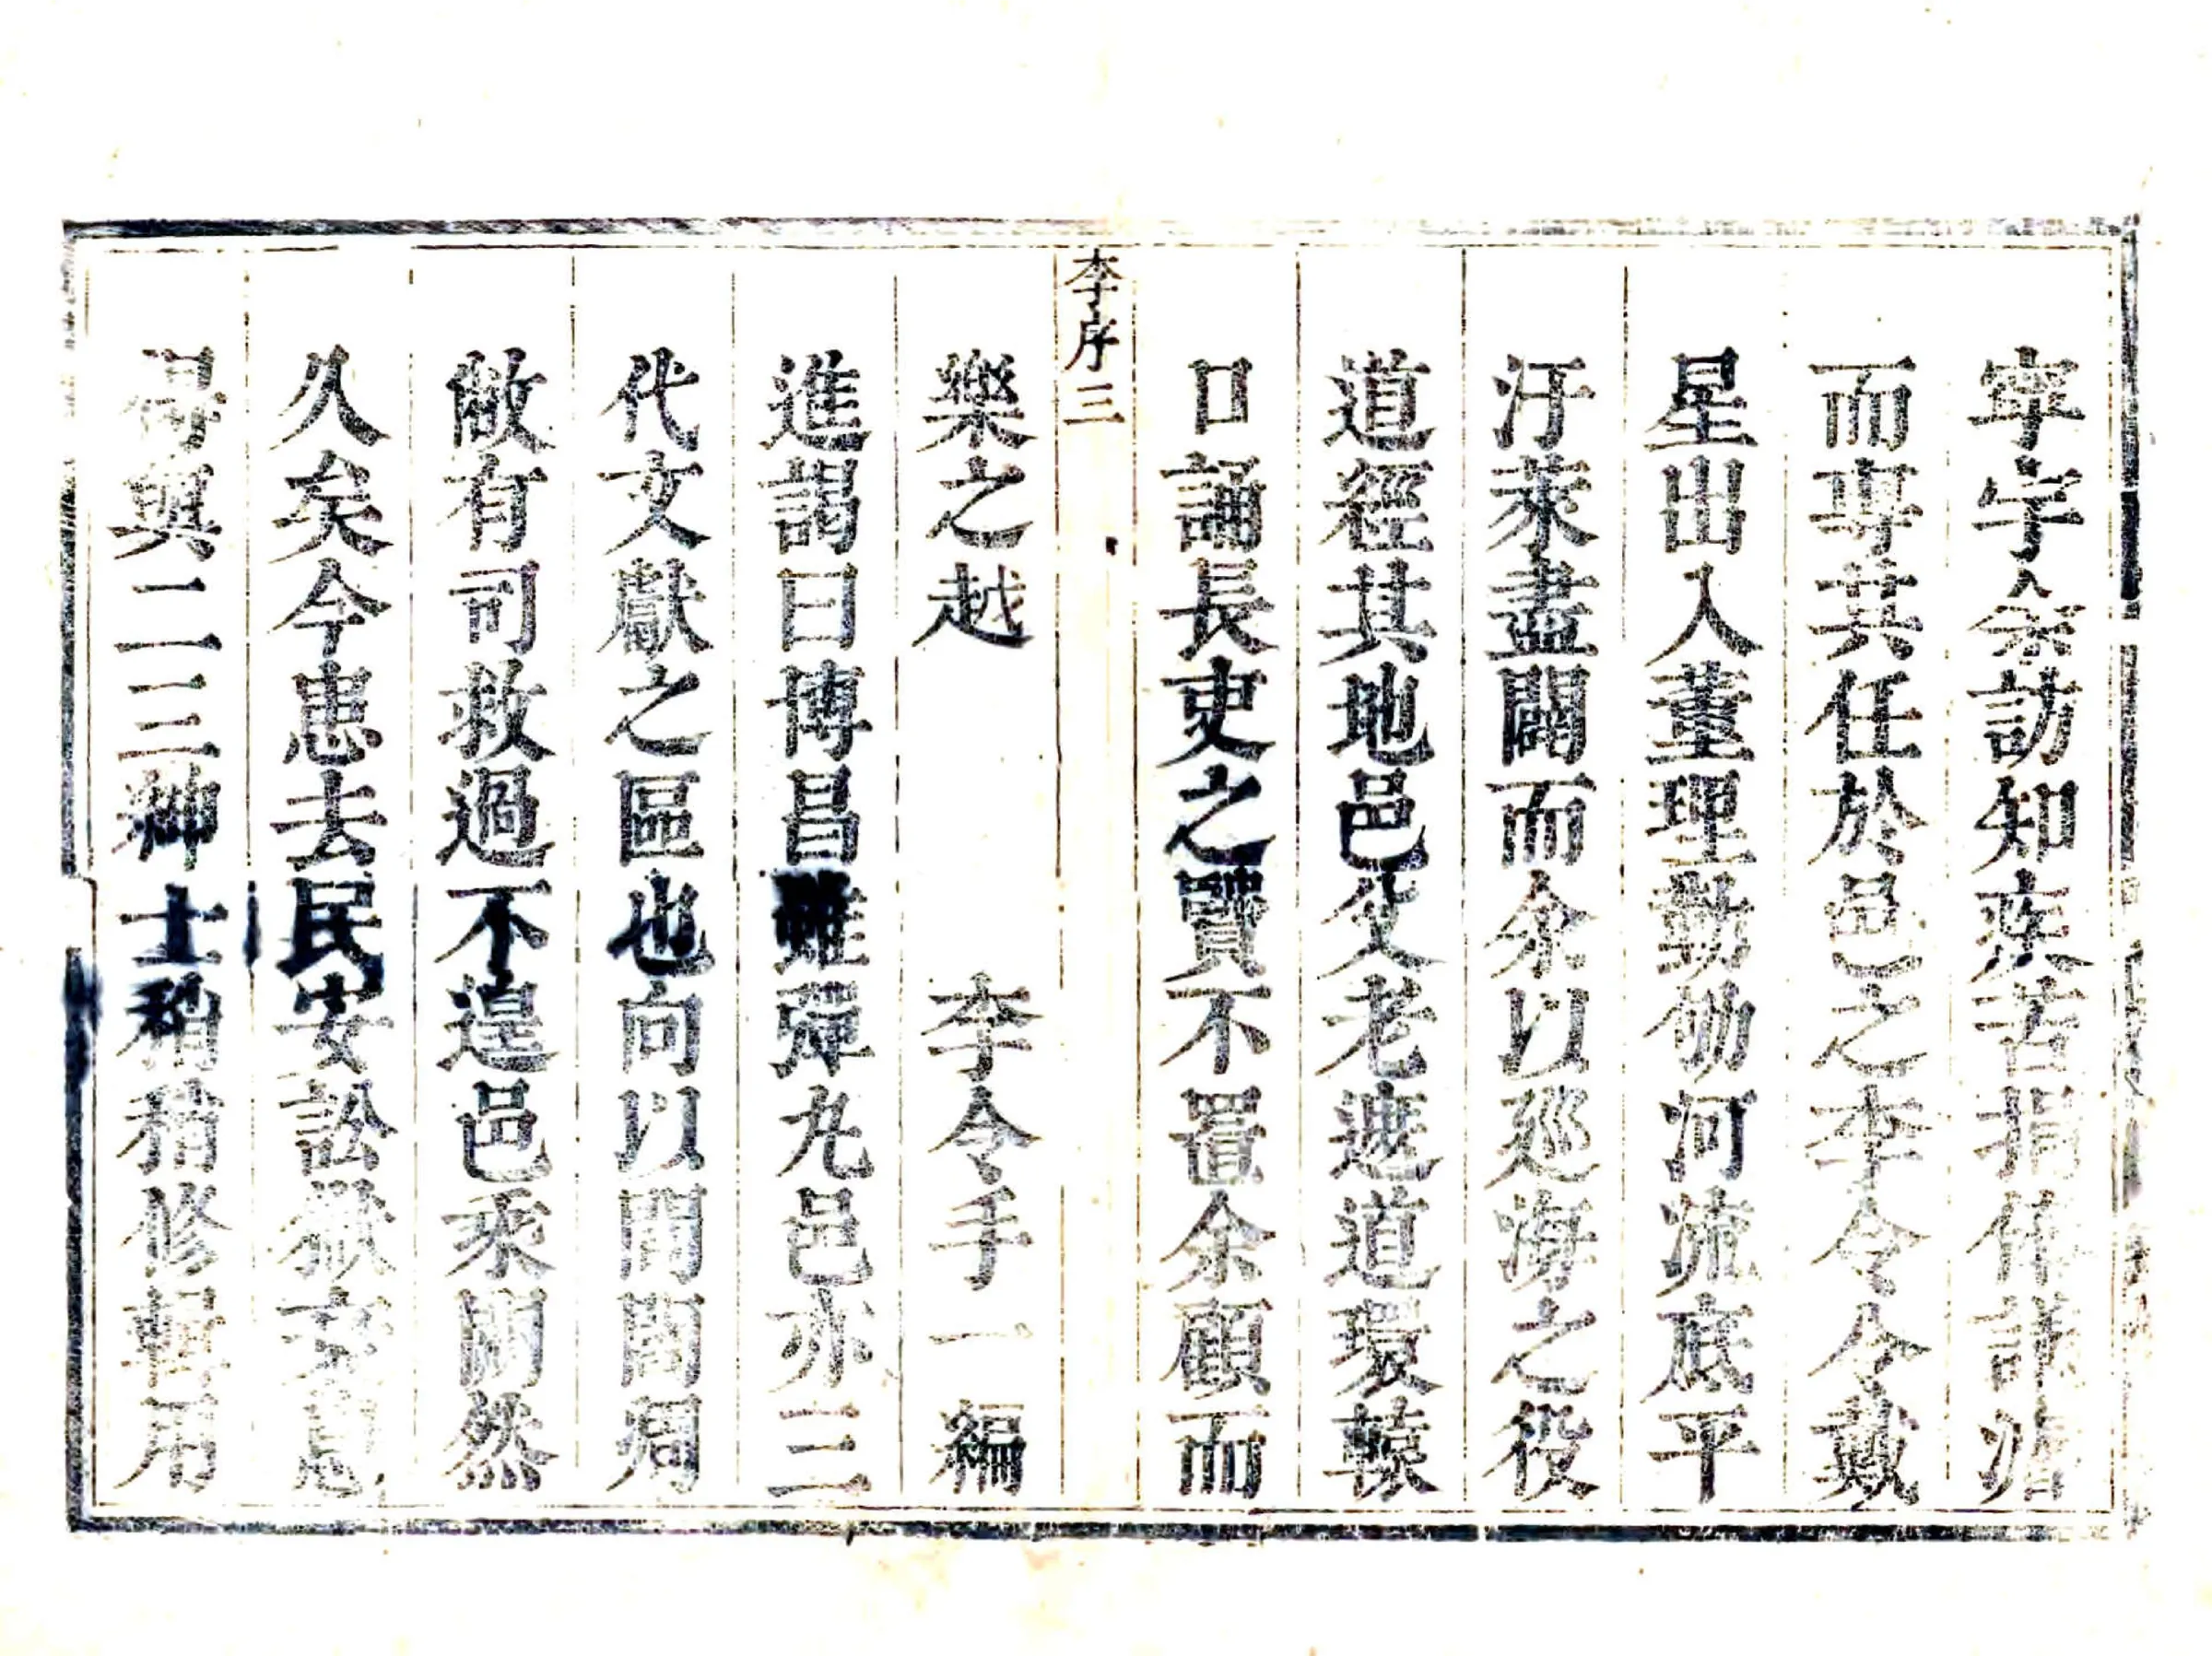 宇余訪知疾苦捐俸議濬
而專其任於邑之李令令戴
星出入董理勤劬河流底平
汙萊盡闢而余以巡海之役
道經其地邑父老遮道環轅
口誦長吏之賢不置余顧而
李序三
樂之越　李令手一編
進謁曰博昌雖彈丸邑亦三
代文獻之區也向以閭閻凋
敝有司救過不遑邑乘闕然
久矣今患去民安訟獄衰息
得與二三紳士稍稍修輯用